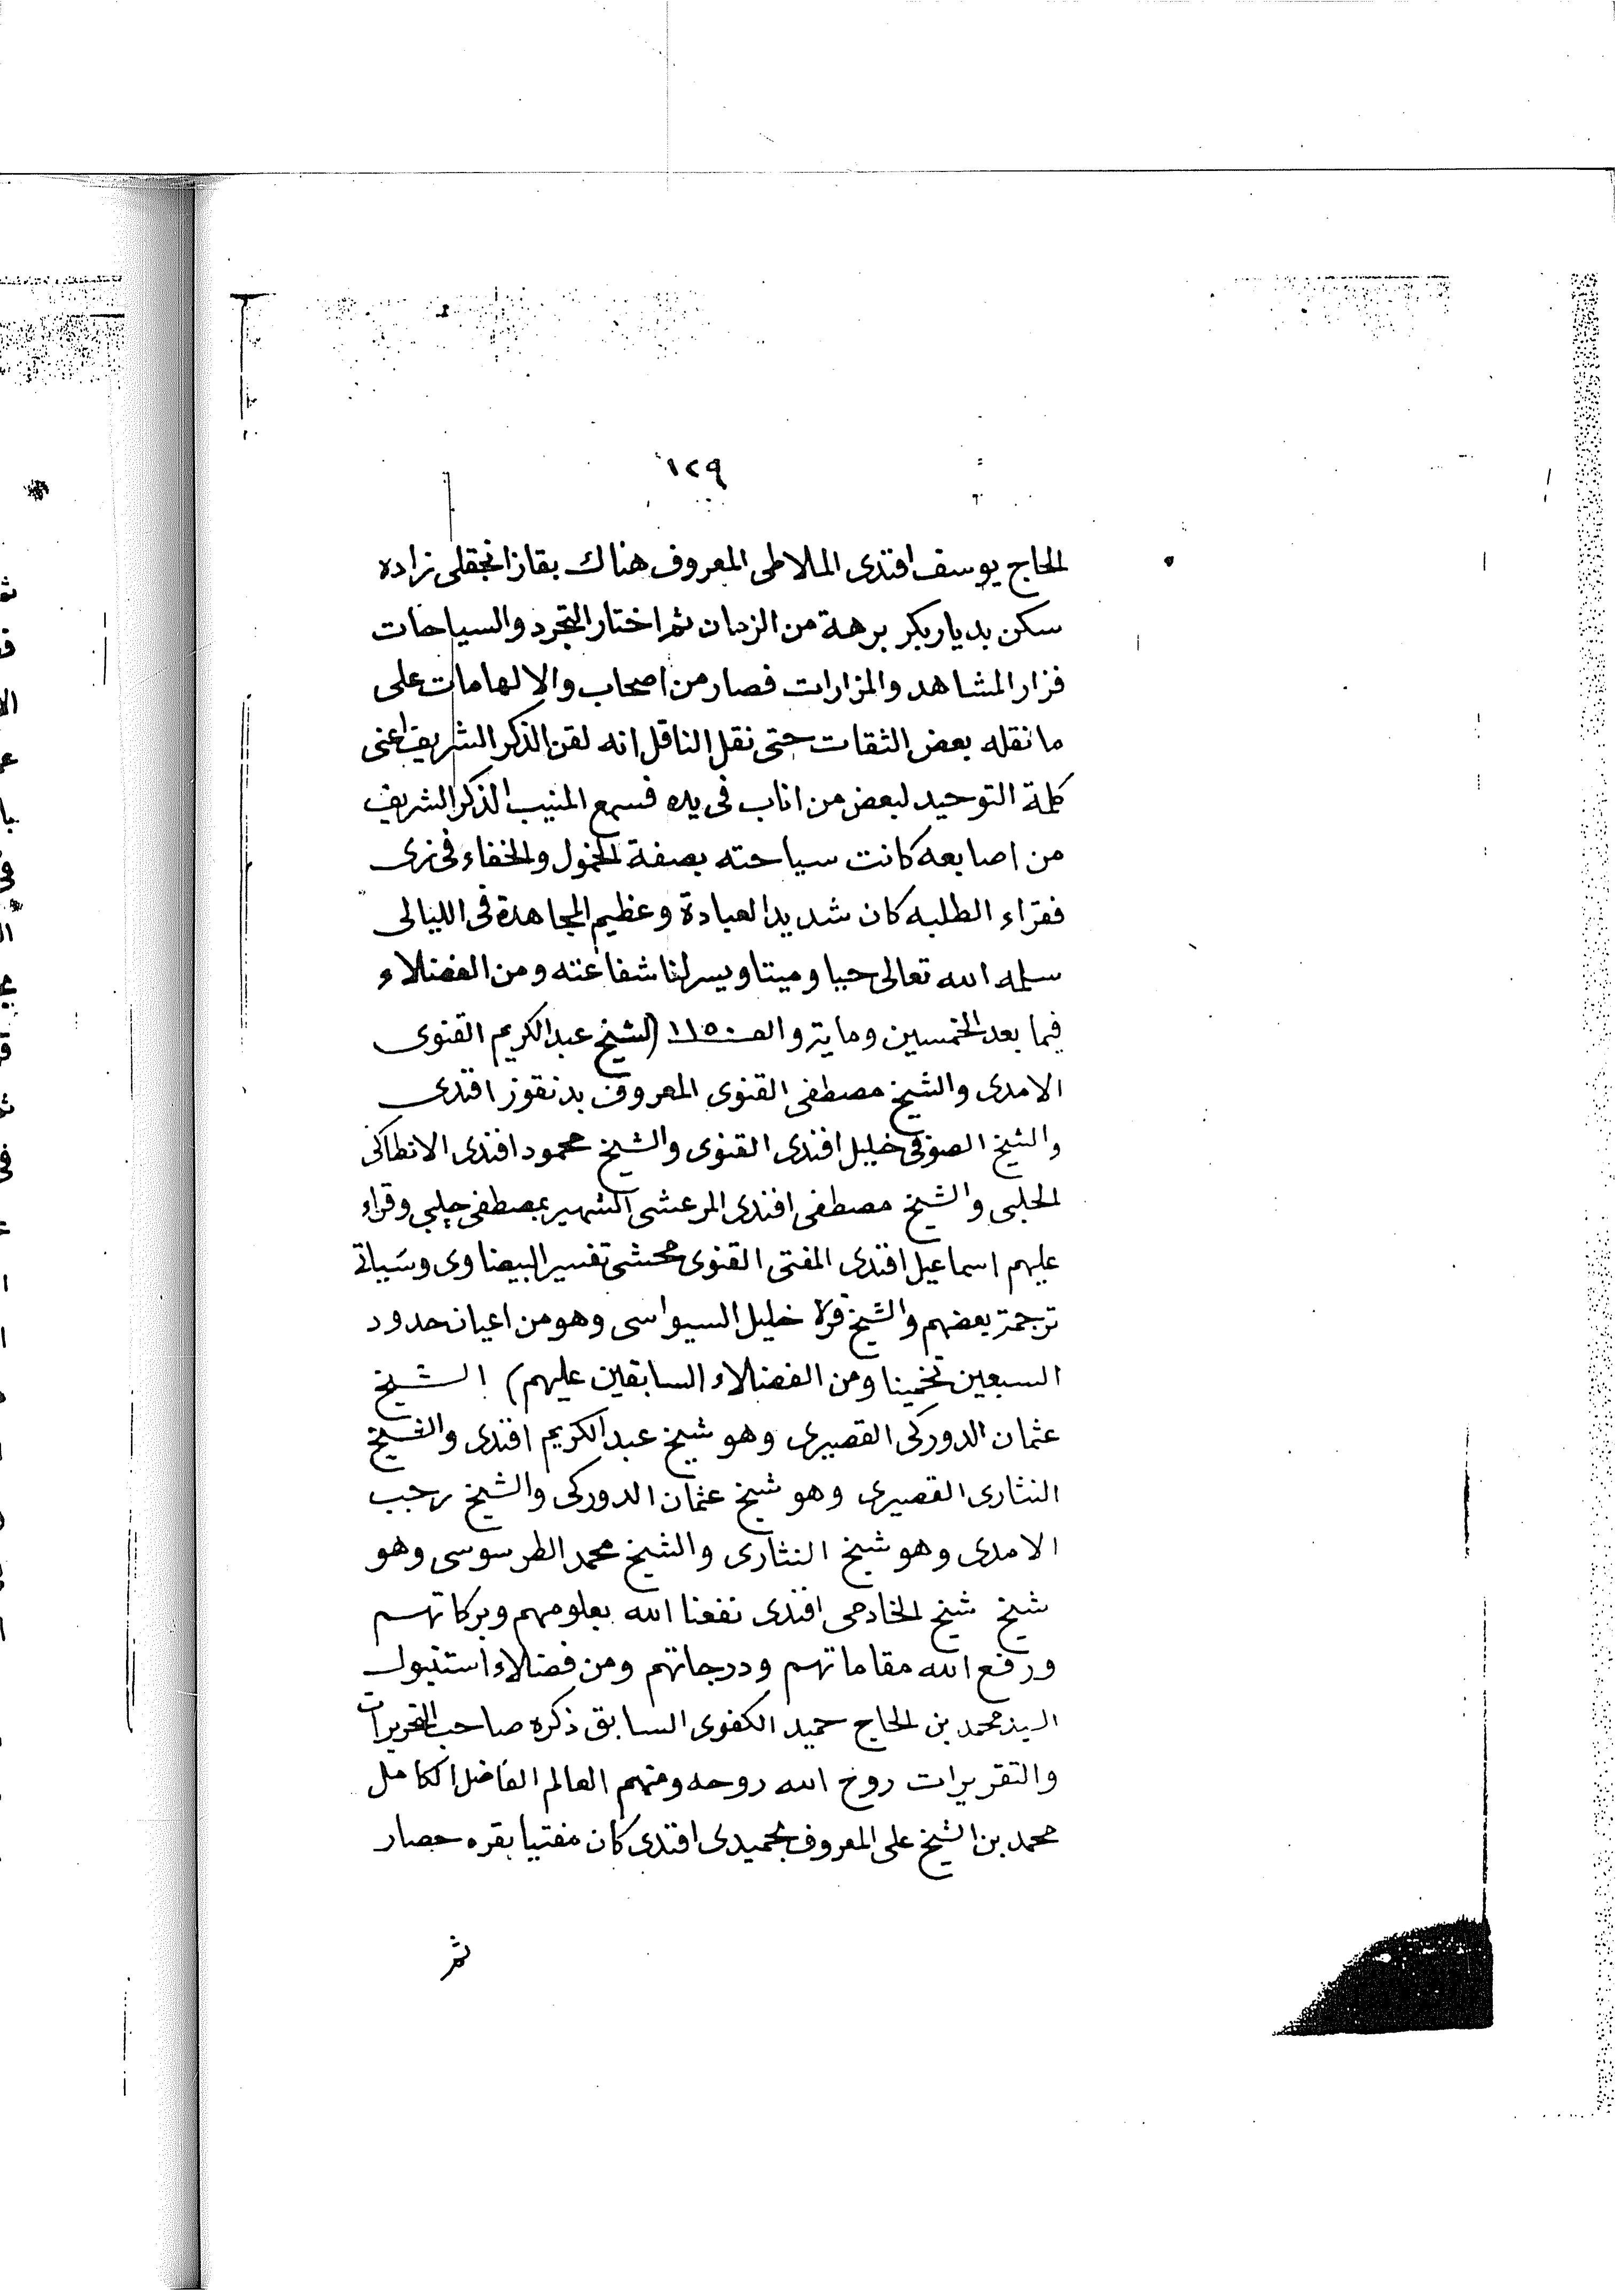 ١٢٩
الحاج يوسف افندى الملاطى المعروف هناك بقازانجقلى زاده
سكن بديار بكر برهة من الزمان ثم اختار التجرد والسياحات
فزار المشاهد والمزارات فصار من اصحاب والالهامات على
ما نقله بعض الثقات حتى نقل الناقل انه لقن الذكر الشريف اعنى
كلمة التوحيد لبعض من اناب فى يده فسمع المنيب الذكر الشريف
من اصابعه كانت سياحته بصفة الخمول والخفاء فى زى
فقراء الطلبه كان شديد العبادة وعظيم المجاهدة فى الليالى
سلمه الله تعالى حيا وميتا ويسر لنا شفاعته ومن الفضلاء
فيما بعد الخمسين ومايتر والف ١١٥٠ (الشيخ عبد الكريم القنوى
الامدى والشيخ مصطفى القنوى المعروف بدنقوز افندى
والشيخ الصوفى خليل افندى القنوى والشيخ محمود افندى الانطاكى
الحلبى والشيخ مصطفى افندى المرعشى الشهير بمصطفى چلبي وقراء
عليهم اسماعيل افندى المفتى القنوى محشى تفسير البيضاوى وسياتى
ترجمة بعضهم والشيخ قرلا خليل السيواسى وهو من اعيان حدود
السبعين تخمينا ومن الفضلاء (السابقين عليهم) الشيخ
عثمان الدوركى القصيرى وهو شيخ عبد الكريم افندى والشيخ
النثارى القصيرى وهو شيخ عثمان الدوركى والشيخ رجب
الامدى وهو شيخ النثارى والشيخ محمد الطرسوسى وهو
شيخ شيخ الخادمى افندى نفعنا الله بعلومهم وبركاتهم
ورفع الله مقاماتهم ودرجاتهم ومن فضلاء استنبول
السيد محمد بن الحاج حميد الكفوى السابق ذكره صاحب التحريرات
والتقريرات روح الله روحه ومنهم العالم الفاضل الكامل
محمد بن الشيخ على المعروف بحميدى افندى كان مفتيا بقره حصار
ثم